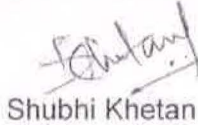 Shubhi Khetan